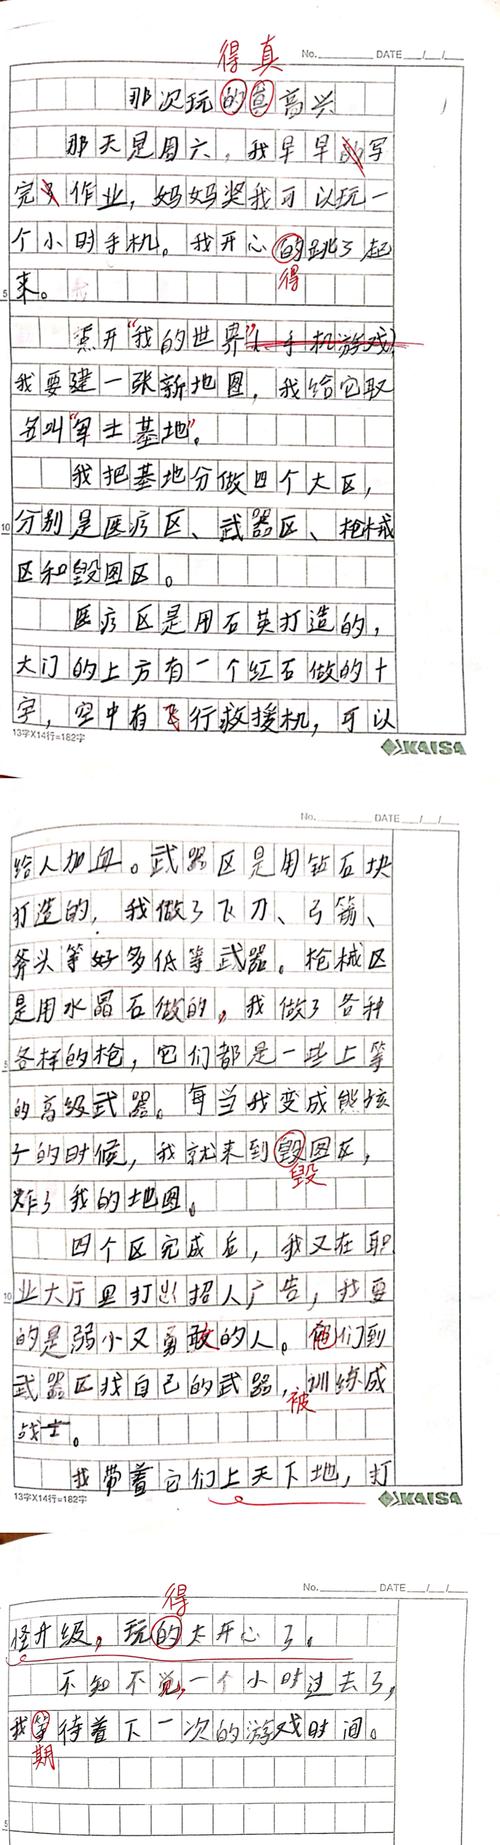 得真
No. DATE
那次玩的真高兴
那天是周六，我早早的写
完了作业，妈妈奖我可以玩一
个小时手机。我开心的跳了起
得
5
来。
点开"我的世界"（手机游戏）
我要建一张新地图，我给它取
名叫"军士基地"。
我把基地分做四个大区，
10
分别是医疗区、武器区、枪械
区和毁图区。
医疗区是用石英打造的，
大门的上方有一个红石做的十
字，空中有飞行救援机，可以
13字X14行=182字
KAISA
No. DATE
给人加血。武器区是用钻石块
打造的，我做了飞刀、弓箭、
斧头等好多低等武器。枪械区
是用水晶石做的，我做了各种
5
各样的枪，它们都是一些上等
的高级武器。每当我变成熊孩
子的时候，我就来到毁图区，
毁
炸了我的地图。
四个区完成后，我又在职
10
业大厅里打出招人广告，我要
的是弱小又勇敢的人。他们到
武器区找自己的武器，训练成
被
战士。
我带着它们上天下地，打
13字X14行=182字
KAISA
No. DATE
得
怪升级，玩的太开心了。
不知不觉，一个小时过去了，
我等待着下一次的游戏时间。
期
5